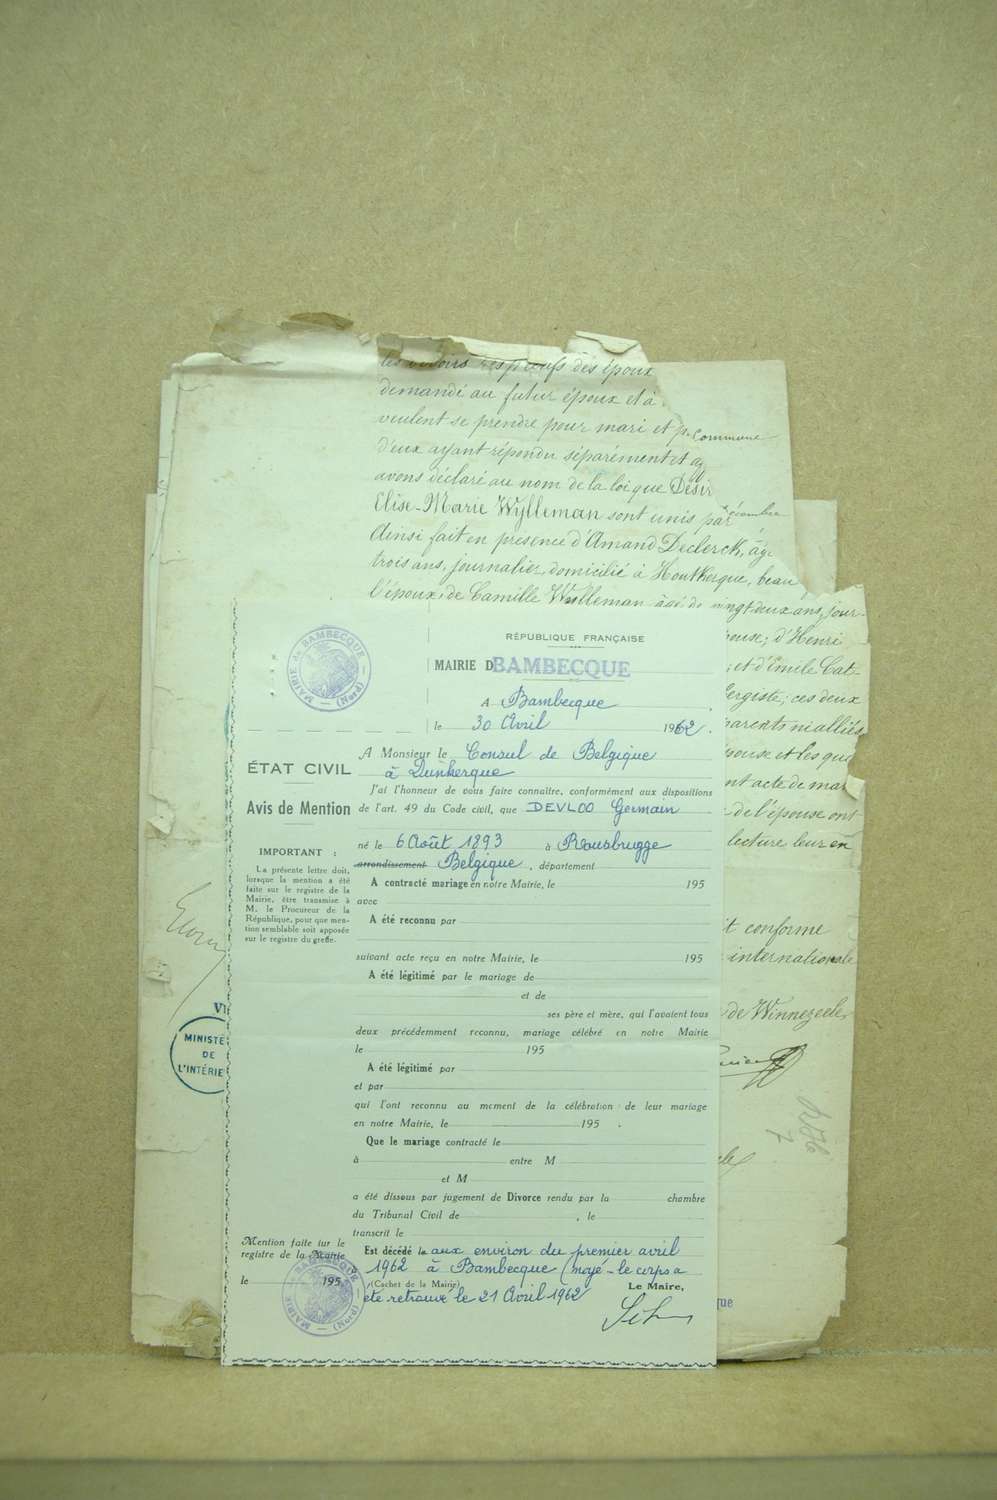 les devoirs respectifs des époux
demandé au futur époux et à
veulent se prendre pour mari et
commune
d'eux ayant répondu séparément et
avons déclaré au nom de la loi que Désir
Elise-Marie Wylleman sont unis par
Ainsi fait en présence d'Amand Declerck, âg
trois ans, journalier, domicilié à Houtkerque, beau
l'époux, de Camille Wylleman âgé de vingt deux ans, jour-
pouse; d'Henri
; et d'Emile Cat-
ergiste; ces deux
parents ni alliés
pouse et les qua
nt acte de mar
de l'épouse ont
lecture leur en
t conforme
internationale
de Winnezeele
MAIRIE de BAMBECQUE
(Nord)
RÉPUBLIQUE FRANÇAISE
MAIRIE D BAMBECQUE
A Bambecque
le 30 Avril 1962.
A Monsieur le Consul de Belgique
à Dunkerque
ÉTAT CIVIL
Avis de Mention
IMPORTANT :
La présente lettre doit,
lorsque la mention a été
faite sur le registre de la
Mairie, être transmise à
M. le Procureur de la
République, pour que men-
tion semblable soit apposée
sur le registre du greffe.
J'ai l'honneur de vous faire connaître, conformément aux dispositions
de l'art. 49 du Code civil, que DEVLOO Germain
né le 6 Août 1893 à Rousbrugge
arrondissement Belgique, département
A contracté mariage en notre Mairie, le 195
avec
A été reconnu par
suivant acte reçu en notre Mairie, le 195
A été légitimé par le mariage de
et de
ses père et mère, qui l'avaient tous
deux précédemment reconnu, mariage célébré en notre Mairie
le 195
A été légitimé par
et par
qui l'ont reconnu au moment de la célébration de leur mariage
en notre Mairie, le 195 .
Que le mariage contracté le
à entre M
et M
a été dissous par jugement de Divorce rendu par la chambre
du Tribunal Civil de , le
transcrit le
Est décédé le aux environ du premier avril
1962 à Bambecque (noyé - le corps a
(Cachet de la Mairie)
Le Maire,
été retrouvé le 21 Avril 1962
Mention faite sur le
registre de la Mairie
le 195
MAIRIE de BAMBECQUE
(Nord)
MINISTÈ
DE
L'INTÉRIE
que